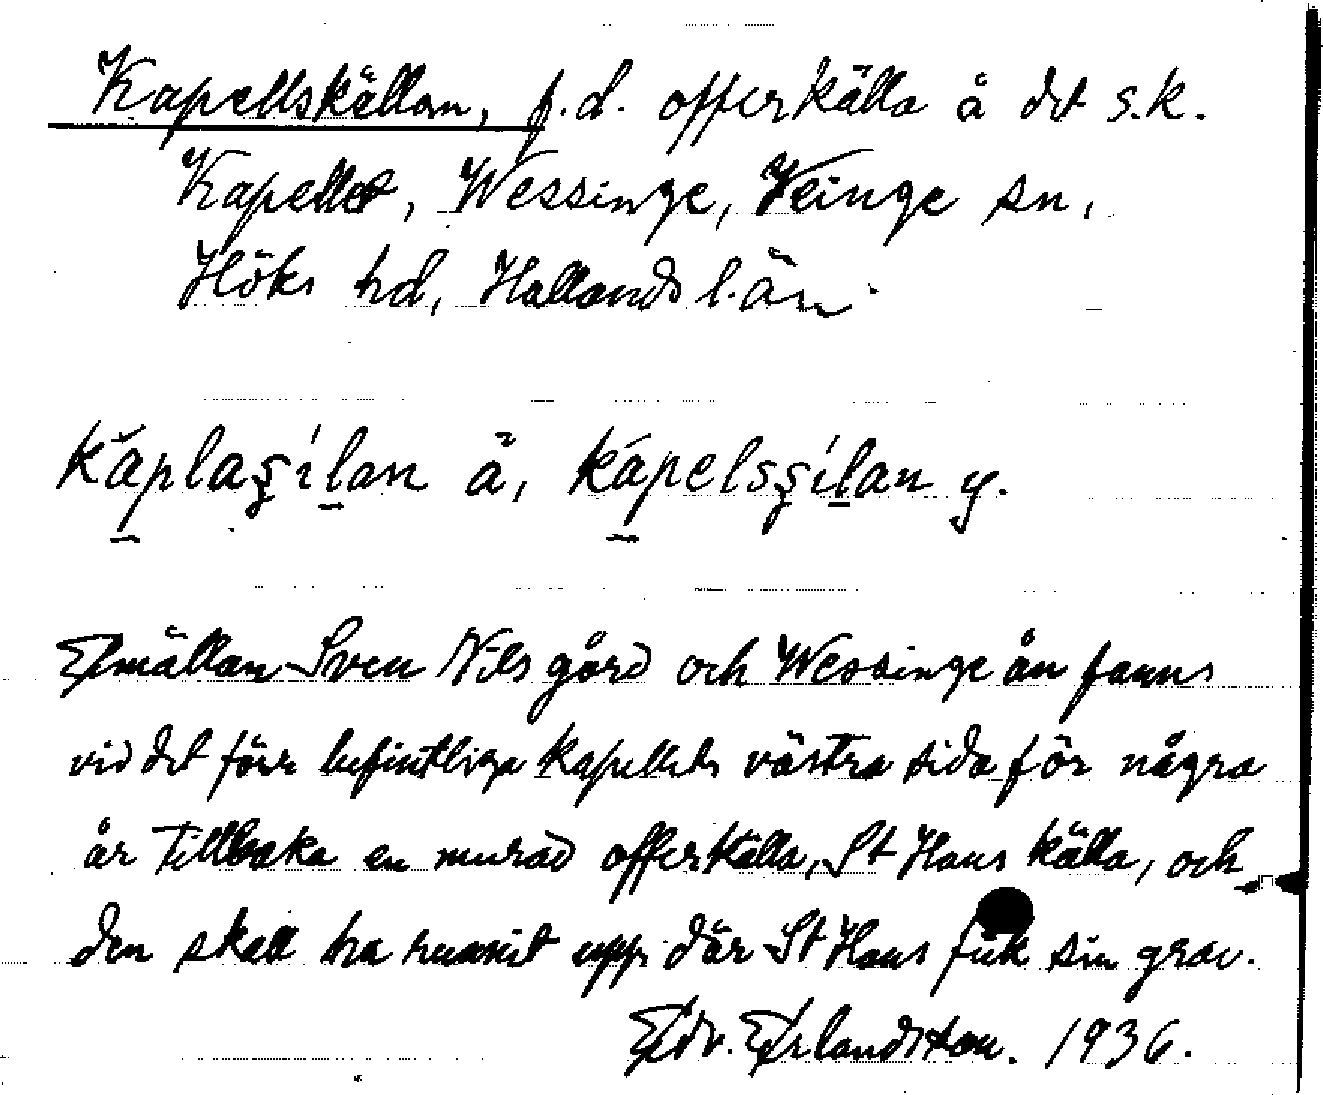 Kapellskällan, f.d. offerkälla å det s.k.
Kapellet, Wessinge, Veinge sn,
Höks hd, Hallands län.
kăplaşílan ä, kápelsşílan y.
Emällan Sven Nils gård och Wessinge ån fanns
vid det förr befintliga kapellets västra sida för några
år tillbaka en murad offerkälla, St Hans källa, och
den skall ha runnit upp där St Hans fick sin grav.
Edv. Erlandsson. 1936.